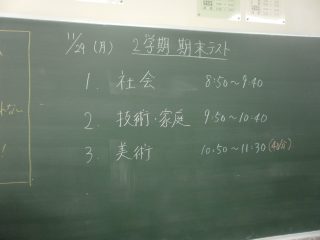 11/29 (月) 2学期 期末テスト
1. 社会 8:50～9:40
2. 技術・家庭 9:50～10:40
3. 美術 10:50～11:30 (40分)
ない
!